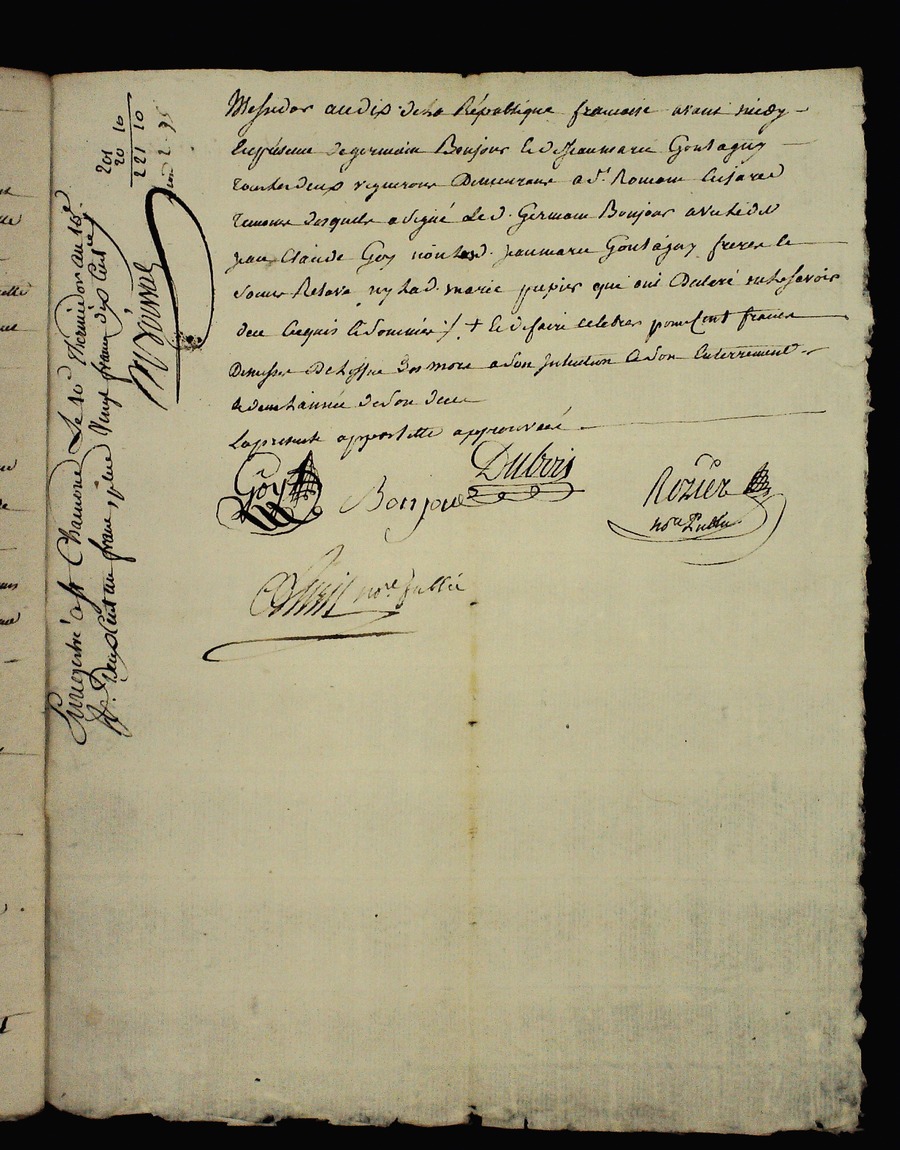 Messidor an dix de la République francaise avant midy
En presence de germain Bonjour & de Jeanmarie Gontagny
tous les deux vignerons Demeurans a St. Romain
temoins desquels a signé Led. Germain Bonjour avec led.
Jean Claude Goy non led. Jeanmarie Gontagny freres &
Soeur ny lad. marie pupier qui ont declaré ne le savoir
de ce Enquis & Sommés ./. + & de faire celebrer pour Cent francs
De messes De L'office Des morts a Son Intention a Son Enterrement
& dans L'année de Son deces
La presente appostille approuvée
Goy Bonjour Dubois Rozier
nore. Public
nore. Public
Enregistré a St Chamond Le 10 Thermidor an 10e.
R. Deux Cent un franc plus Vingt francs dix Cent.
201
20 10
221 10